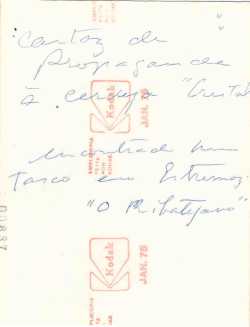 "cartaz de
propaganda
à cerveja "Cristal
encontrado num
Tasco em Estremoz
"O Ribatejano"
Kodak
JAN. 75
Kodak
JAN. 75